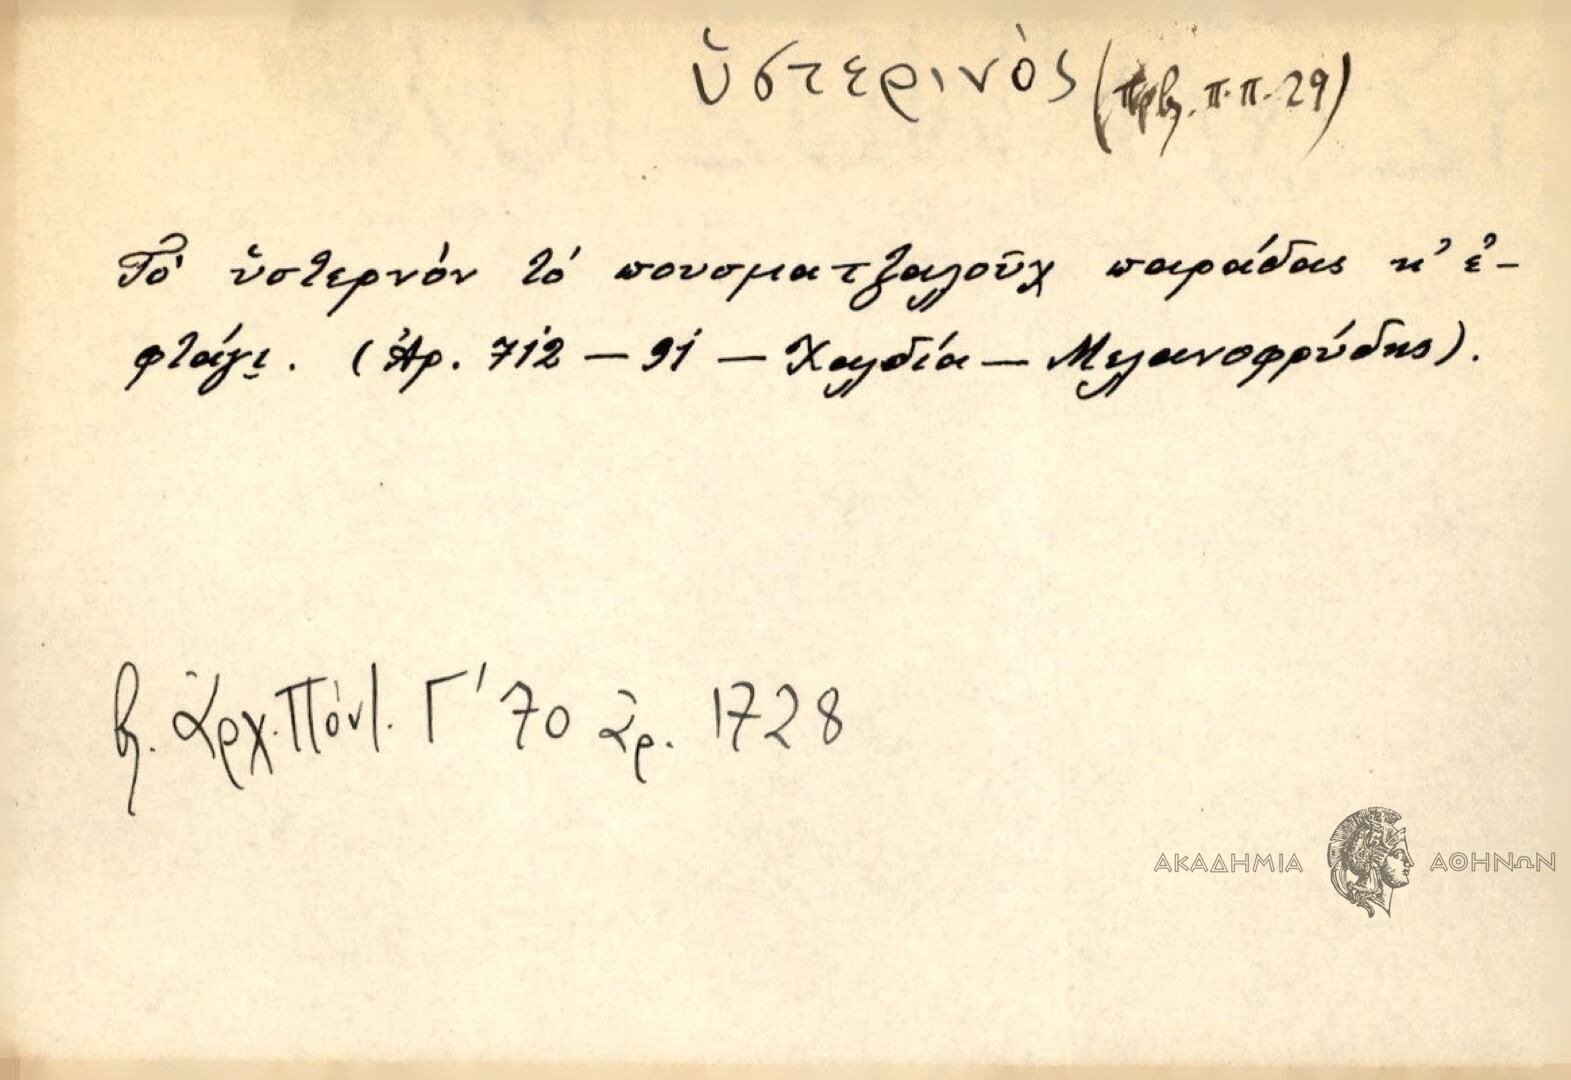 ὑστερινὸς (πρβ. π.π. 29)
Τὸ ὑστερνὸν τὸ πουσματζαλοῦχ παράδας κ' ἐ-
φτάγ̱ι. (Ἀρ. 712 — 91 — Χαλδία — Μελανοφρύδης).
β. Ἀρχ. Πόντ. Γ' 70 ἀρ. 1728
ΑΚΑΔΗΜΙΑ ΑΘΗΝΩΝ